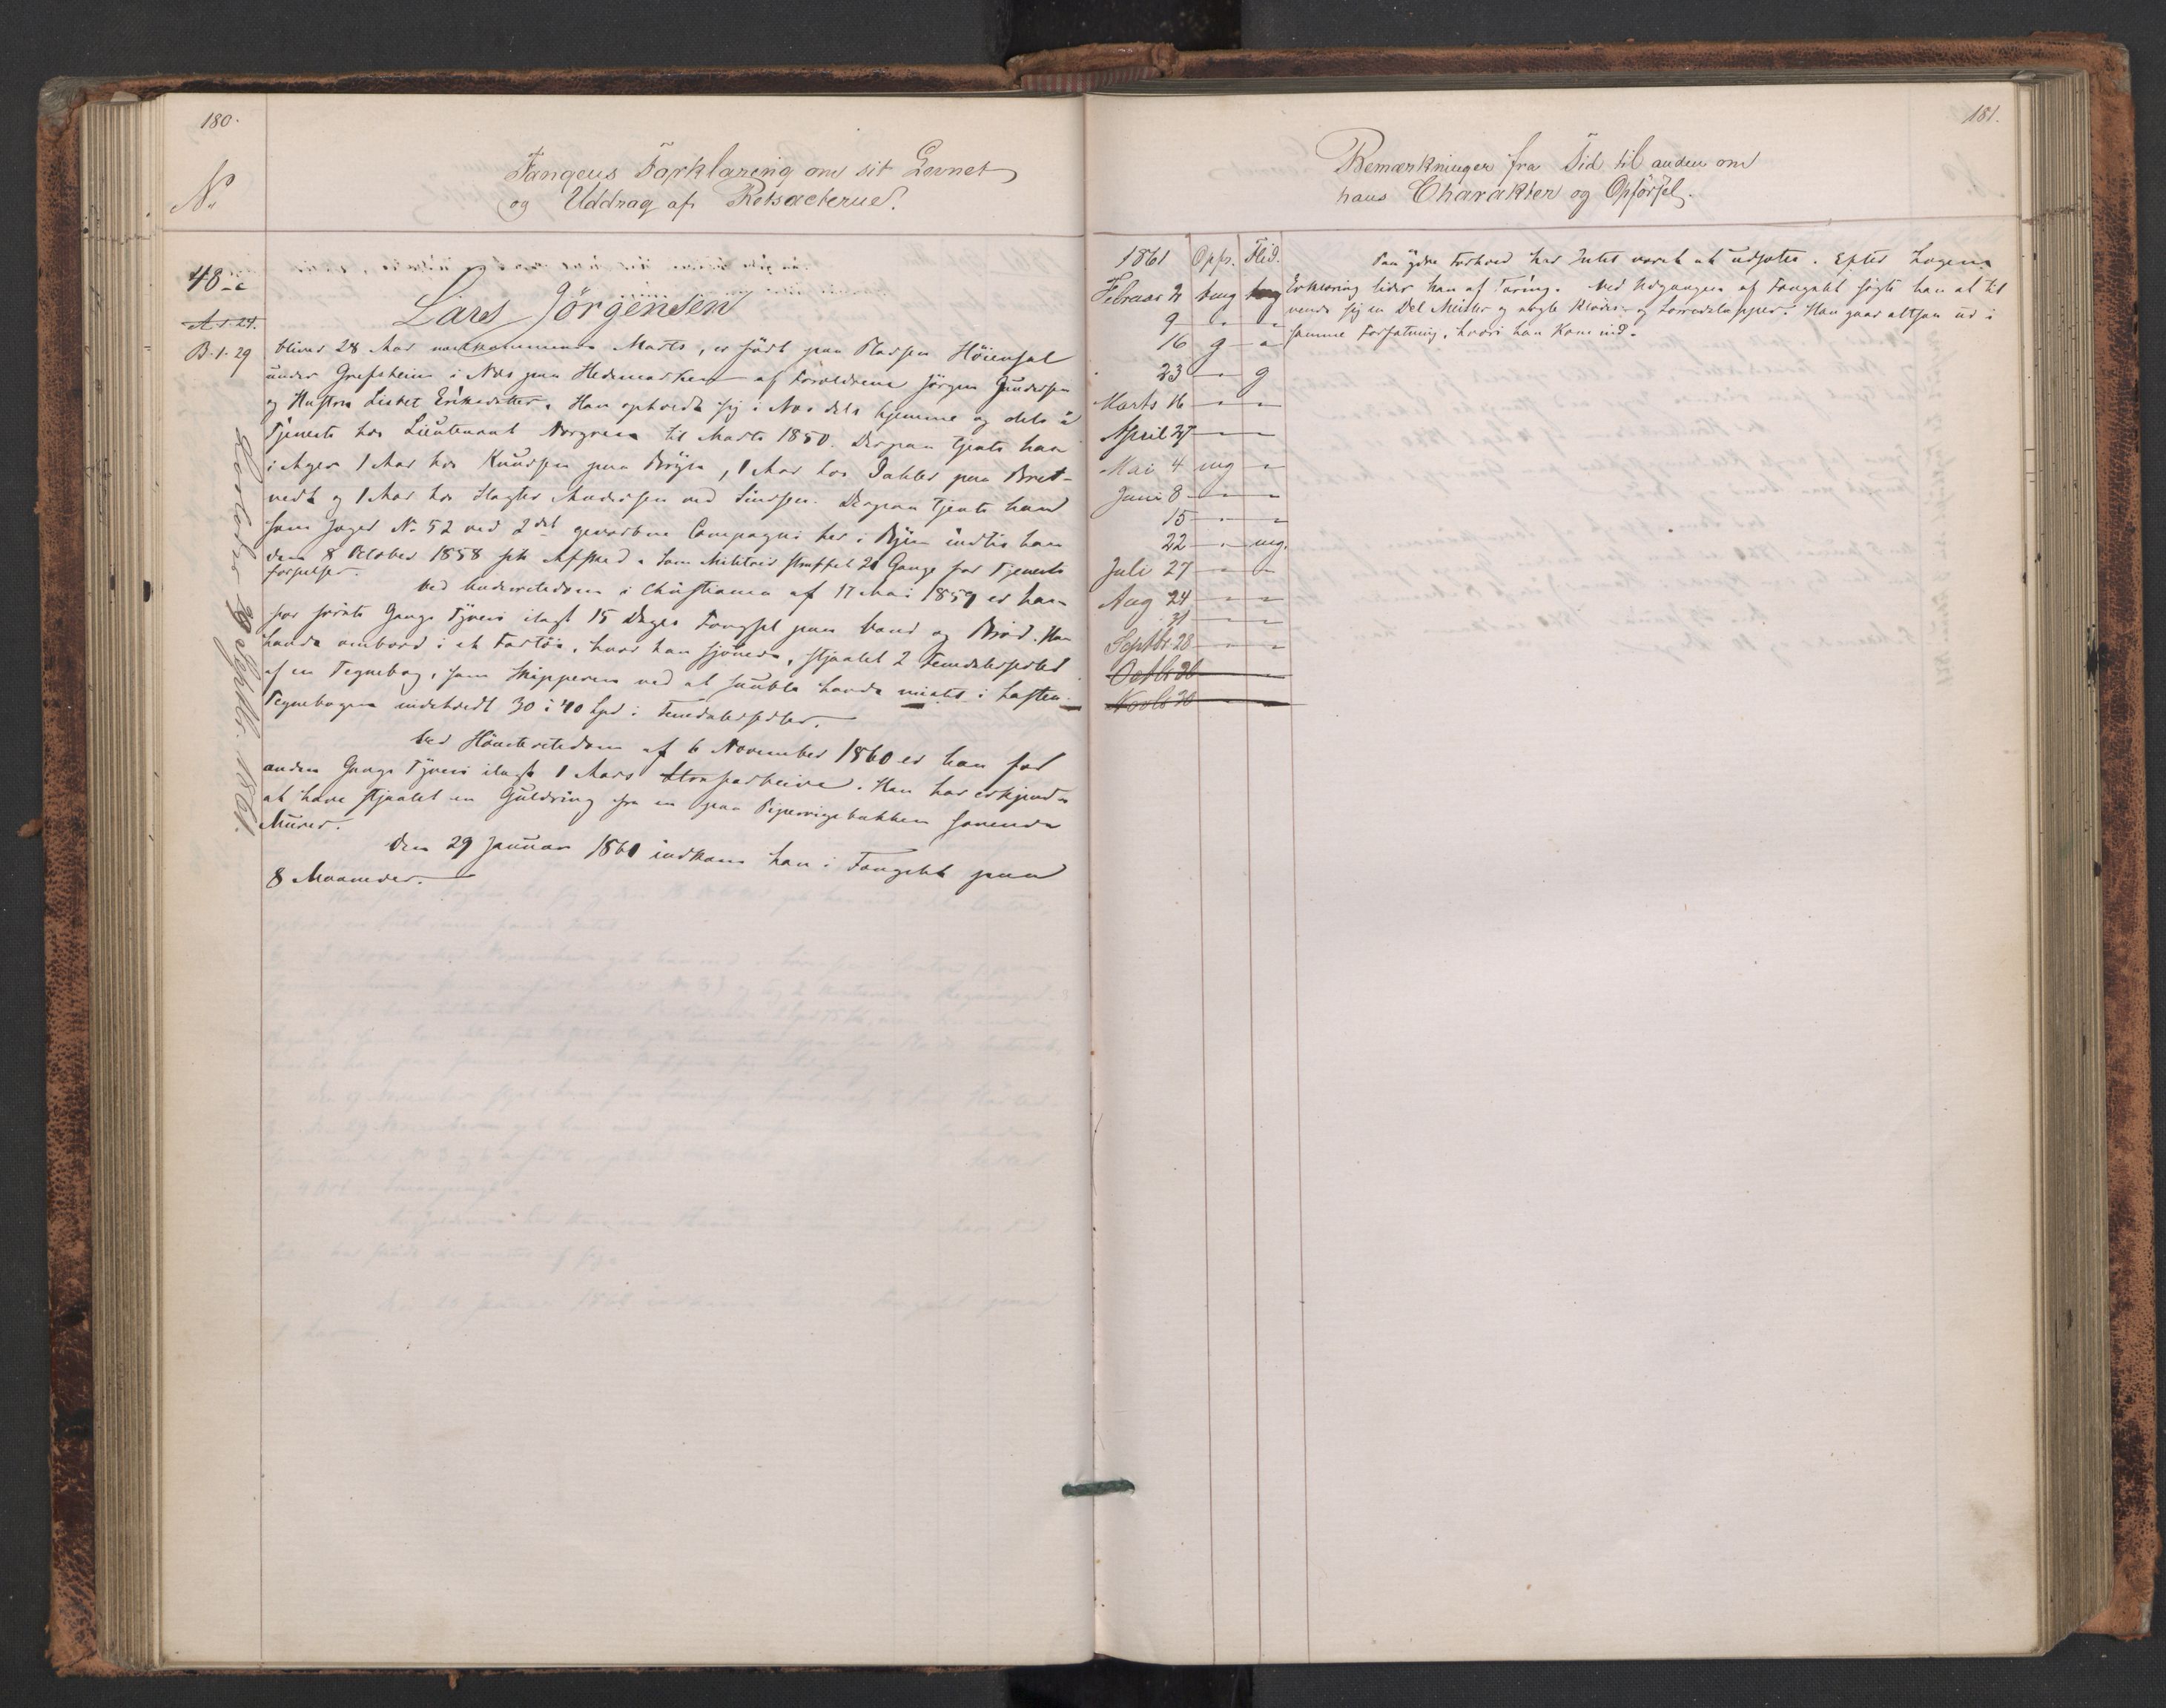 180.
No
Fangens Forklaring om sit Levnet
og Uddrag af Retsacterne.
48-c
A.1.24.
B.1.29
Lars Jörgensen
bliver 28 Aar nærkommende Marts, er födt paa Pladsen Höiensal
under Grefsheim i Næs paa Hedemarken af Forældrene Jörgen Gundersen
og Hustru Lisbet Eriksdatter. Han opholdt sig i Næs dels hjemme og dels i
Tjeneste hos Lieutenant Norgren til Marts 1850. Derpaa tjente han
i Ager 1 Aar hos Knudsen paa Bryn, 1 Aar hos Dahler paa Bret-
vedt og 1 Aar hos Slagter Andersen ved Sinsen. Derpaa tjente han
som Jæger No. 52 ved 2det gevorbne Compagni her i Byen indtil han
den 8 October 1858 fik Afsked. Som Militair straffet 21 Gange for Tjeneste
forseelser.
Ved Underretsdom i Christiania af 17 Mai 1859 er han
for förste Gangs Tyveri ilagt 15 Dages Fængsel paa Vand og Bröd. Han
havde ombord i et Fartöi, hvor han sjouede, stjaalet 2 Femdalersedler
af en Tegnebog, som Skipperen ved at snuble havde mistet i Lasten.
Tegnebogen indeholdt 30 à 40 Spd i Femdalersedler.
Ved Höiesteretsdom af 6 November 1860 er han for
anden Gangs Tyveri ilagt 1 Aars Strafarbeide. Han har erkjendt
at have stjaalet en Guldring fra en paa Pipervigsbakken sovende
Murer.
Den 29 Januar 1861 indkom han i Fængslet paa
8 Maaneder.
Löslodes 28 Septbr. 1861.
181.
Bemærkninger fra Tid til anden om
hans Charakter og Opförsel.
1861 Opf. Flid.
Februar 2 tmg tmg
9 " "
16 g "
23 " g
Marts 16 " "
April 27 " "
Mai 4 mg "
Juni 8 " "
15 " "
22 " mg.
Juli 27 " "
Aug 24 " "
31 " "
Septbr. 28 " "
Octbr 26
Novbr 30
Paa ydre Forhold har Intet været at udsætte. Efter Lægens
Erklæring lider han af Tæring. Ved Udgangen af Fængslet sögte han at til
vende sig en Del Mutter og nogle Klæder og Lærredslapper. Han gaar altsaa ud i
samme Forfatning, hvori han kom ind.